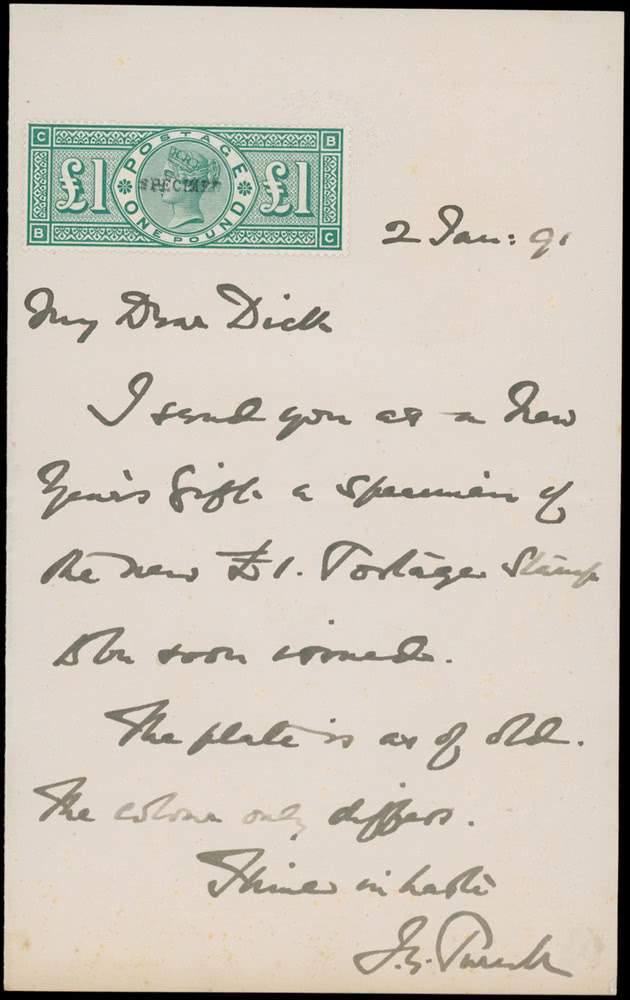 C B
POSTAGE
£1 SPECIMEN £1
ONE POUND
B C
2 Jan: 91
My Dear Dick
I send you as a New
Year's Gift a specimen of
the new £1. Postage Stamp
to be soon issued.
The plate is as of old.
The colour only differs.
Thine in haste